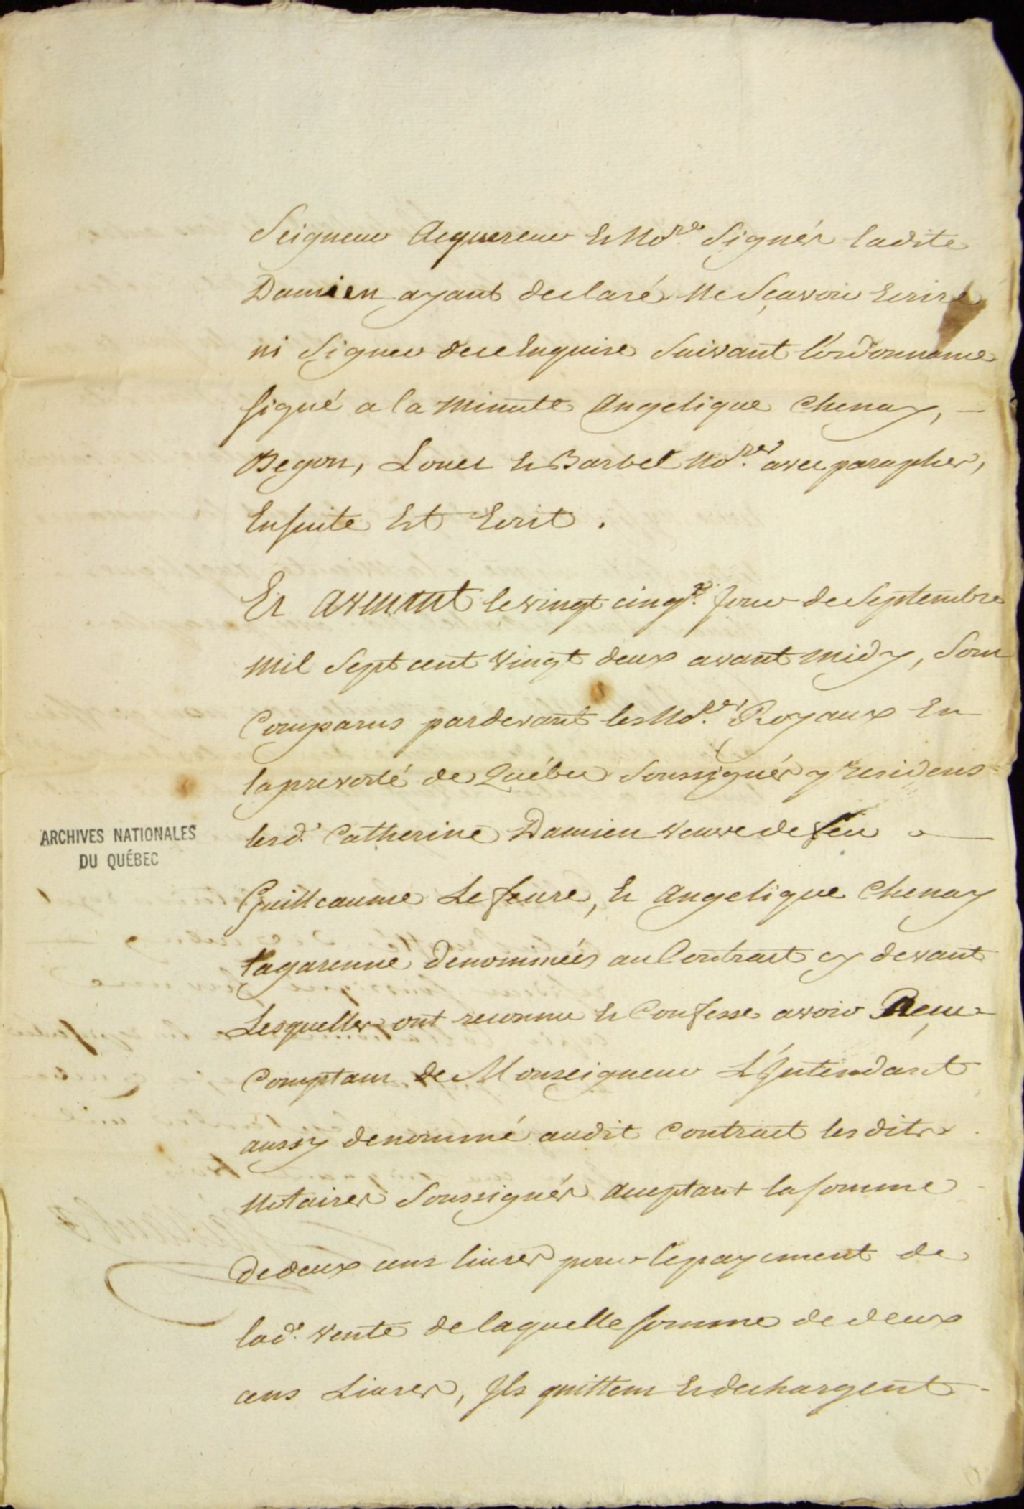 Seigneur Acquereur Et No.res Signés ladite
Damien ayant declaré Ne Sçavoir Ecrire
ni Signer de ce Enquise Suivant l'ordonnance
signé a la Minutte Angelique Chenay,
Begon, Louet Et Barbel No.res avec paraphes,
Ensuite Est Ecrit.
Et avenant le vingt cinq.e jour de Septembre
Mil Sept cent Vingt deux avant midy, Sont
Comparus pardevant les No.res Royaux En
la prevosté de Québec Soussignés y residens
lesd.s Catherine Damien Veuve de feu
Guilleaume Lefeure, Et Angelique Chenay
Lagarenne denommées au Contract cy devant
Lesquelles ont reconnu Et Confesse avoir Reçu
Comptant de Monseigneur L'Intendant
aussy denommé audit Contract les dits
Notaires Soussignés acceptant la somme
de deux cens livres pour le payement de
lad.e vente de laquelle somme de deux
cens Livres, Ils quittent Et dechargent
ARCHIVES NATIONALES
DU QUÉBEC